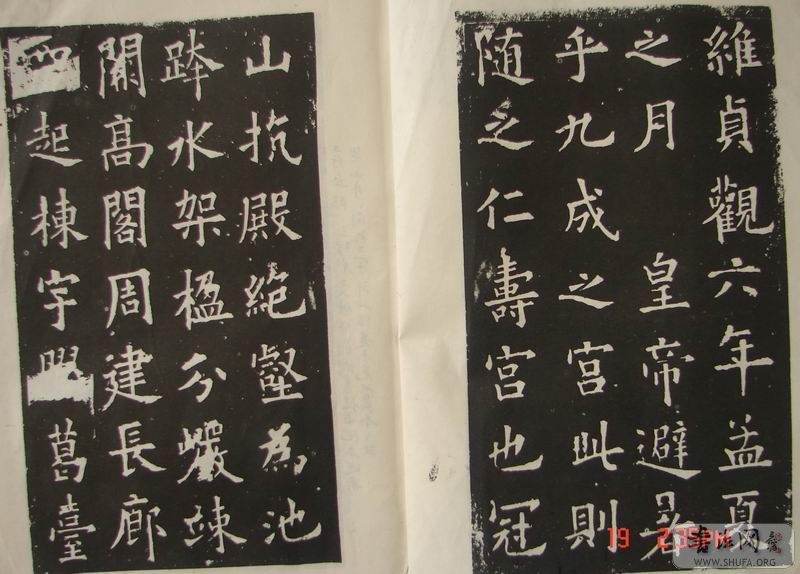 維貞觀六年孟夏
之月 皇帝避暑
乎九成之宮此則
随之仁壽宮也冠
山抗殿絶壑為池
跨水架楹分巖竦
闕高閣周建長廊
四起棟宇膠葛臺
19 2:35PM
書法网
WWW.SHUFA.ORG